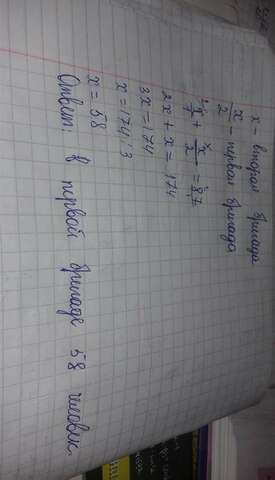 x - вторая бригада
x/2 - первая бригада
x/1 + x/2 = 87
2x + x = 174
3x = 174
x = 174 : 3
x = 58
Ответ: в первой бригаде 58 человек.